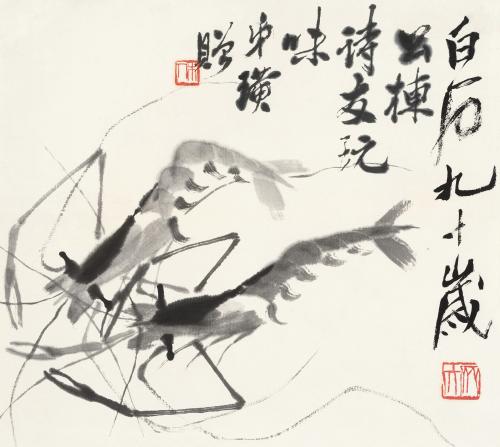 白石九十歲
公棟
诗友玩
味
弟璜
贈